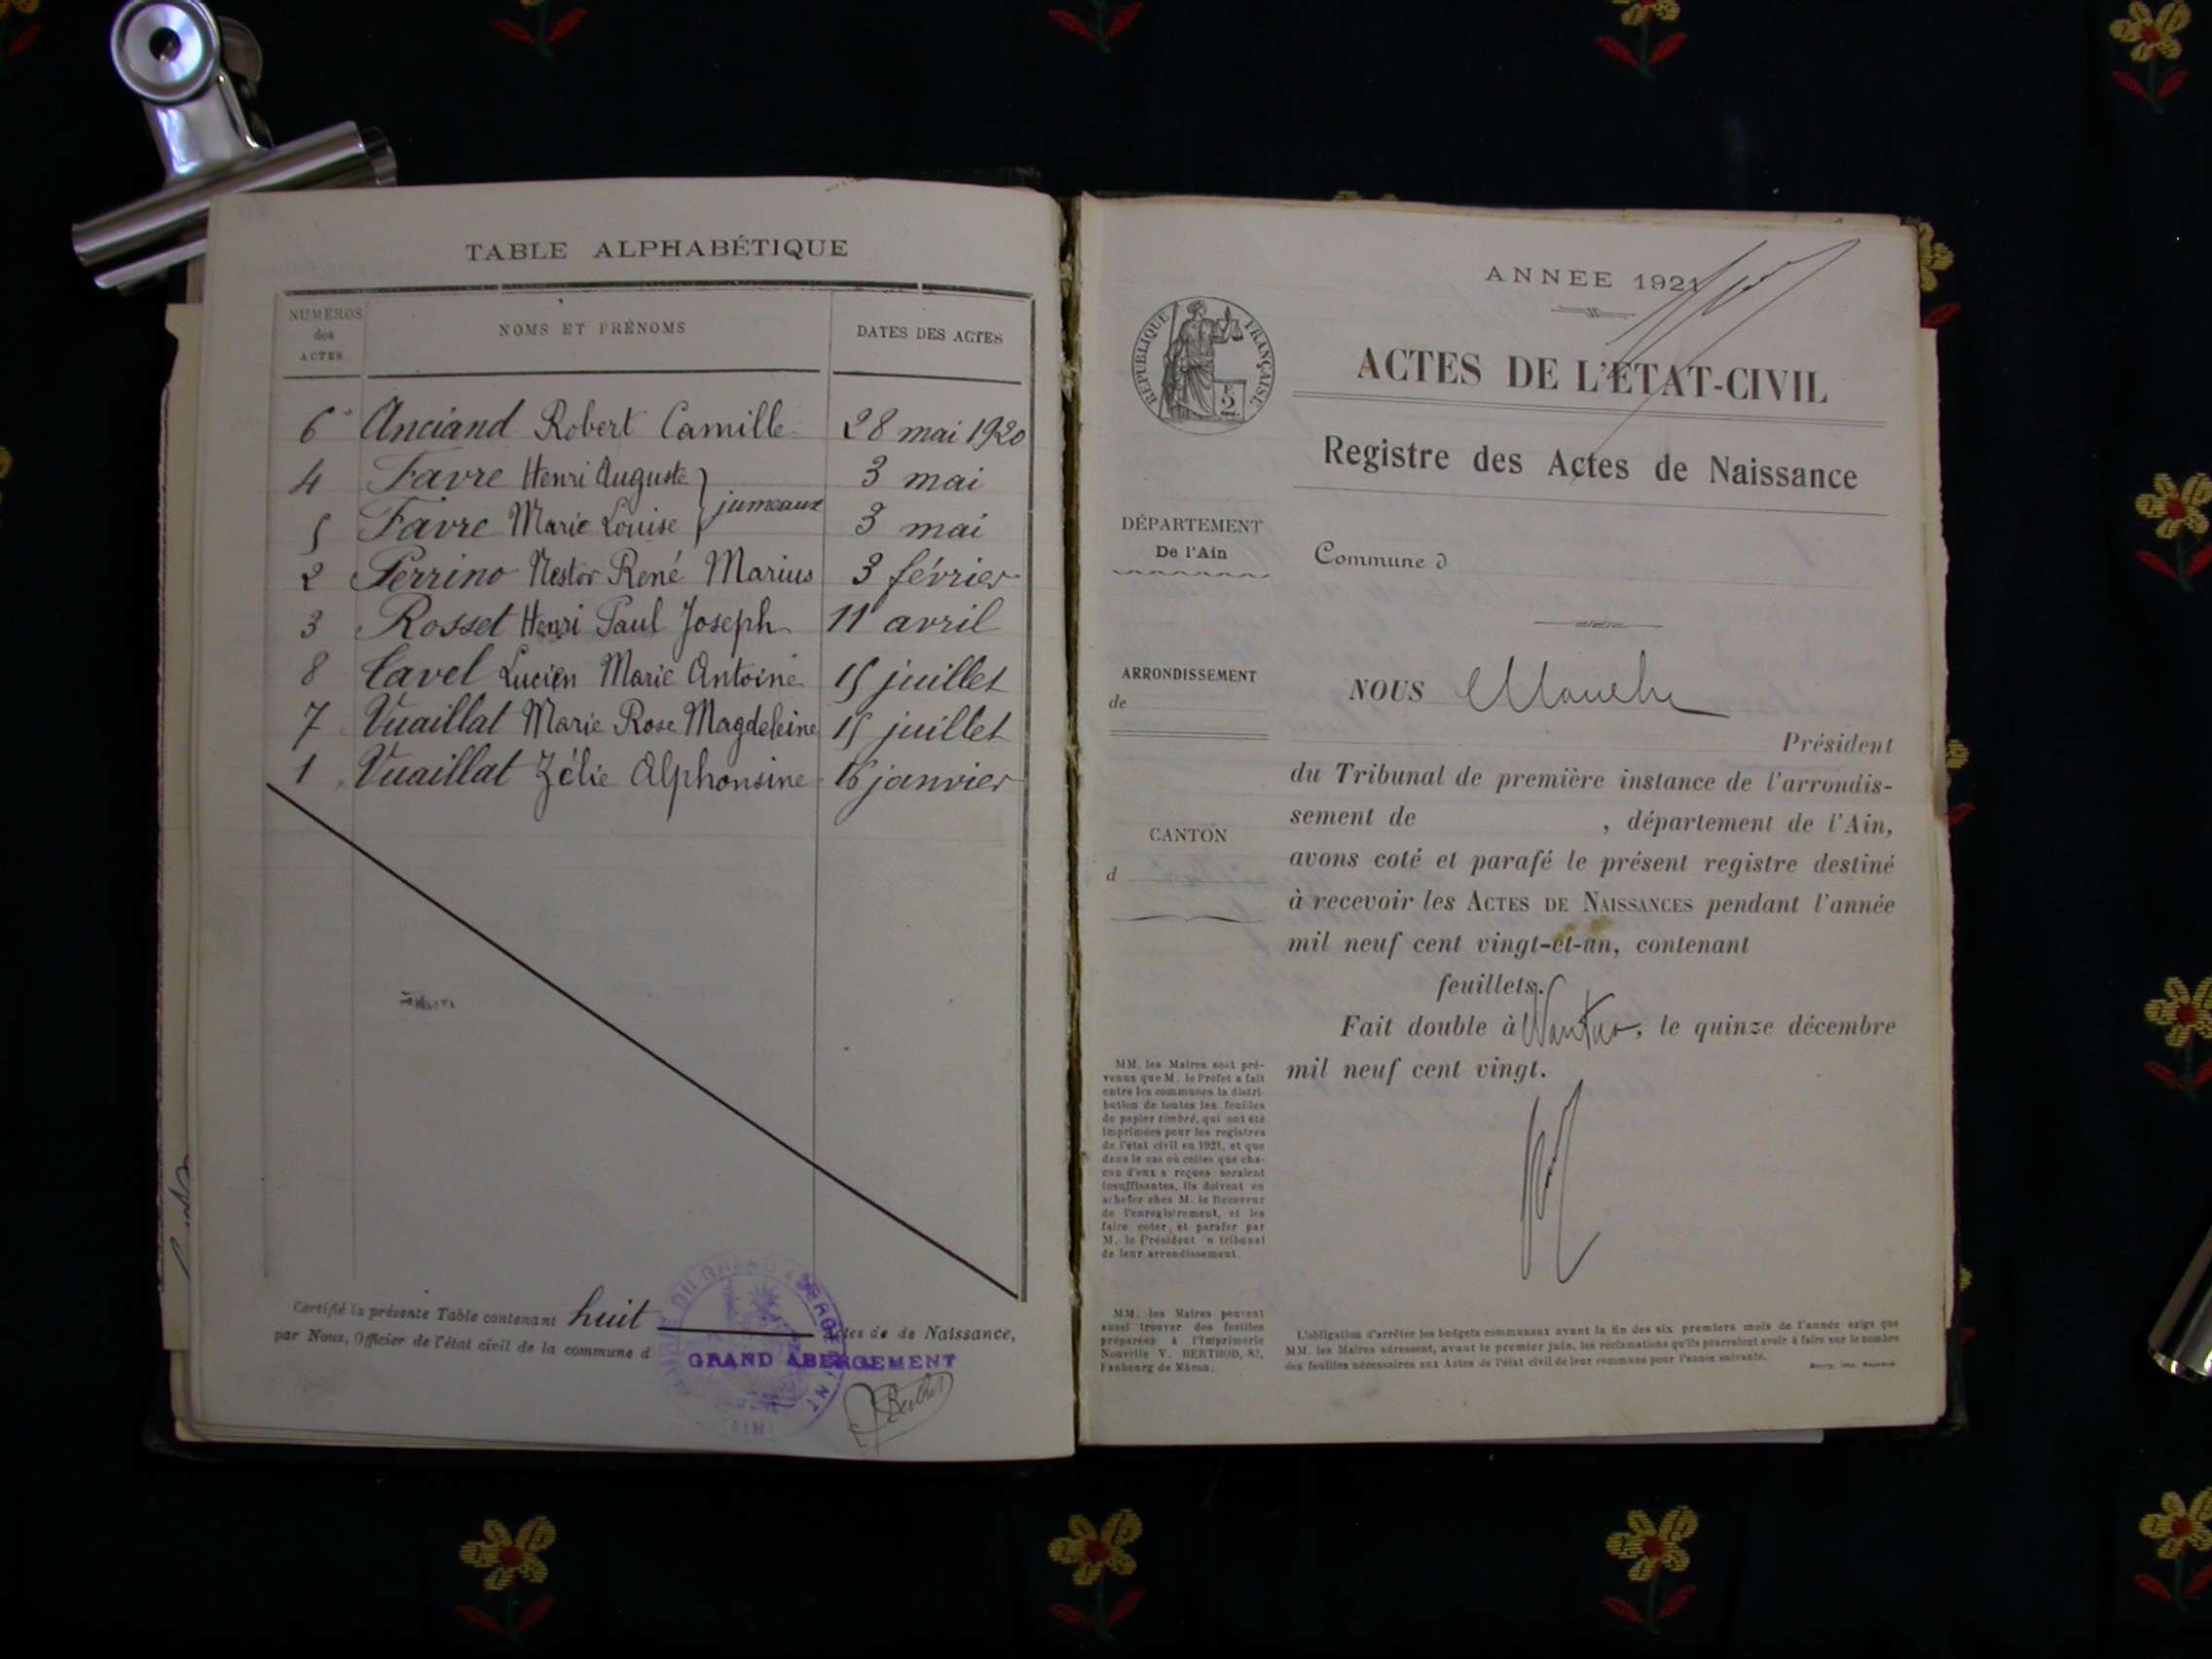 TABLE ALPHABÉTIQUE
NUMÉROS
des
ACTES
NOMS ET PRÉNOMS
DATES DES ACTES
6 Anciand Robert Camille 28 mai 1920
4 Favre Henri Auguste 3 mai
jumeaux
5 Favre Marie Louise 3 mai
2 Perrino Nestor René Marius 3 février
3 Rosset Henri Paul Joseph 11 avril
8 Tavel Lucien Marie Antoine 15 juillet
7 Vuaillat Marie Rose Magdeleine 15 juillet
1 Vuaillat Zélie Alphonsine 16 janvier
Certifié la présente Table contenant huit Actes de de Naissance,
par Nous, Officier de l'état civil de la commune d
GRAND ABERGEMENT
ANNÉE 1921
RÉPUBLIQUE FRANÇAISE
ACTES DE L'ÉTAT-CIVIL
Registre des Actes de Naissance
DÉPARTEMENT
De l'Ain
Commune d
ARRONDISSEMENT
de
CANTON
d
NOUS
Président
du Tribunal de première instance de l'arrondis-
sement de , département de l'Ain,
avons coté et parafé le présent registre destiné
à recevoir les ACTES DE NAISSANCES pendant l'année
mil neuf cent vingt-et-un, contenant
feuillets.
Fait double à Nantua, le quinze décembre
mil neuf cent vingt.
MM. les Maires sont pré-
venus que M. le Préfet a fait
entre les communes la distri-
bution de toutes les feuilles
de papier timbré, qui ont été
imprimées pour les registres
de l'état civil en 1921, et que
dans le cas où celles que cha-
cun d'eux a reçues seraient
insuffisantes, ils doivent en
acheter chez M. le Receveur
de l'enregistrement, et les
faire coter et parafer par
M. le Président n tribunal
de leur arrondissement.
MM. les Maires peuvent
aussi trouver des feuilles
préparées à l'Imprimerie
Nouvelle V. BERTHOD,
Faubourg de Mâcon.
L'obligation d'arrêter les budgets communaux avant la fin des six premiers mois de l'année exige que
MM. les Maires adressent, avant le premier juin, les réclamations qu'ils pourraient avoir à faire sur le nombre
des feuilles nécessaires aux Actes de l'état civil de leur commune pour l'année suivante.